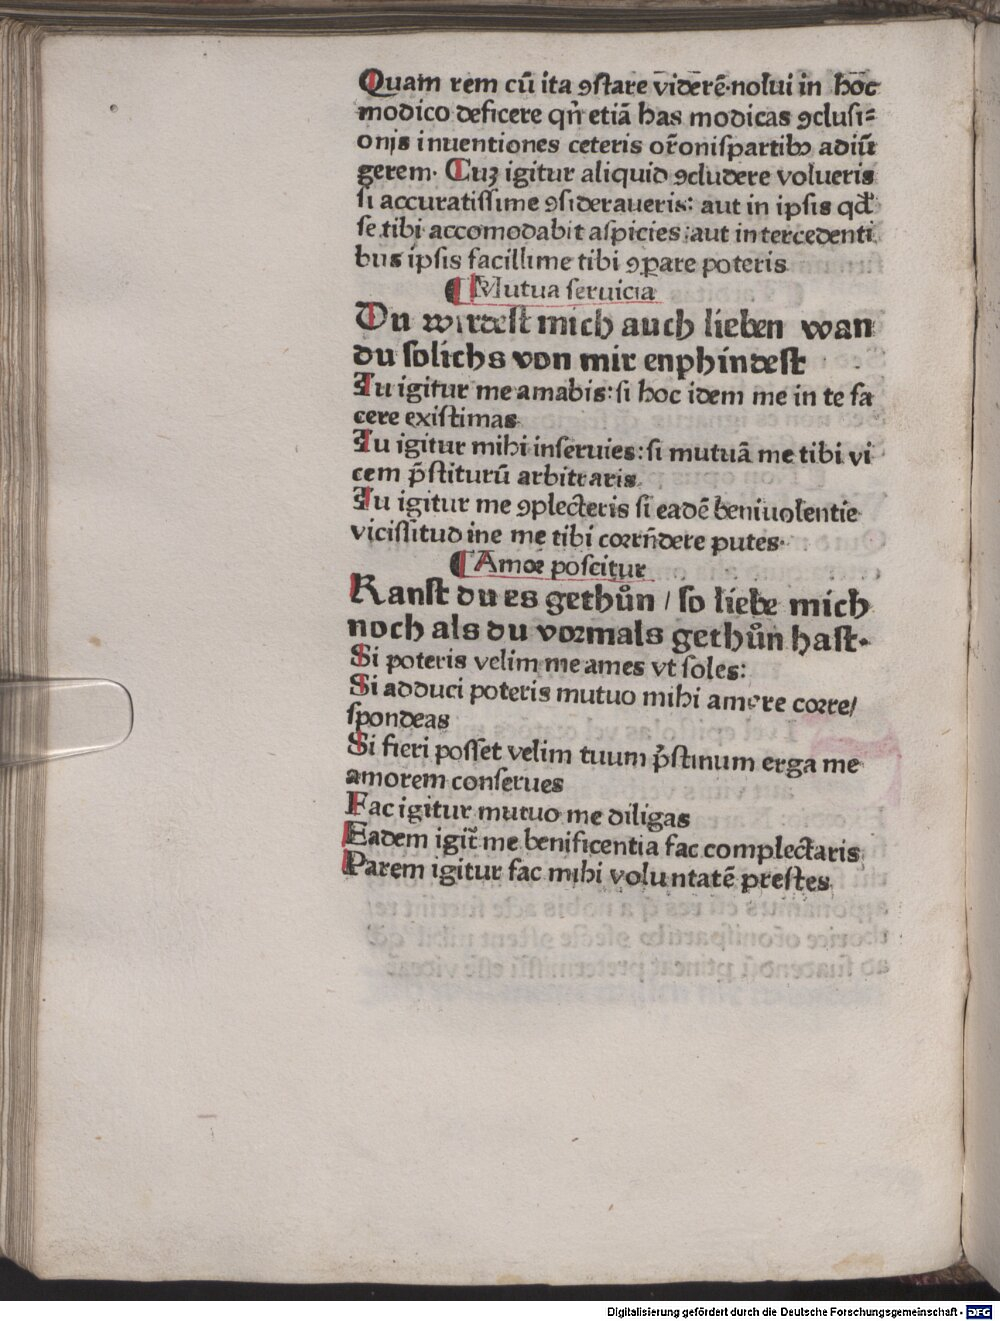 Quam rem cū ita ꝯstare viderē·nolui in hoc
modico deficere qn̄ etiā has modicas ꝯclusi⸗
onis inuentiones ceteris or̄onispartibꝫ adiū
gerem· Cuꝫ igitur aliquid ꝯcludere volueris
si accuratissime ꝯsideraueris: aut in ipsis qd̓
se tibi accomodabit aspicies:aut intercedenti
bus ipsis facillime tibi ꝯꝑare poteris
¶ Mutua seruicia
Du wirdest mich auch lieben wan
du solichs von mir enphindest
Tu igitur me amabis: si hoc idem me in te fa
cere existimas
Tu igitur mihi inseruies: si mutuā me tibi vi
cem p̄stiturū arbitraris.
Tu igitur me ꝯplecteris si eadē beniuolentie
vicissitudine me tibi correñdere putes·
¶ Amor poscitur
Kanst du es gethůn / so liebe mich
noch als du vormals gethůn hast·
Si poteris velim me ames vt soles:
Si adduci poteris mutuo mihi amore corre/
spondeas
Si fieri posset velim tuum p̄stinum erga me
amorem conserues
Fac igitur mutuo me diligas
Eadem igit̄ me benificentia fac complectaris
Parem igitur fac mihi voluntatē prestes
Digitalisierung gefördert durch die Deutsche Forschungsgemeinschaft - DFG